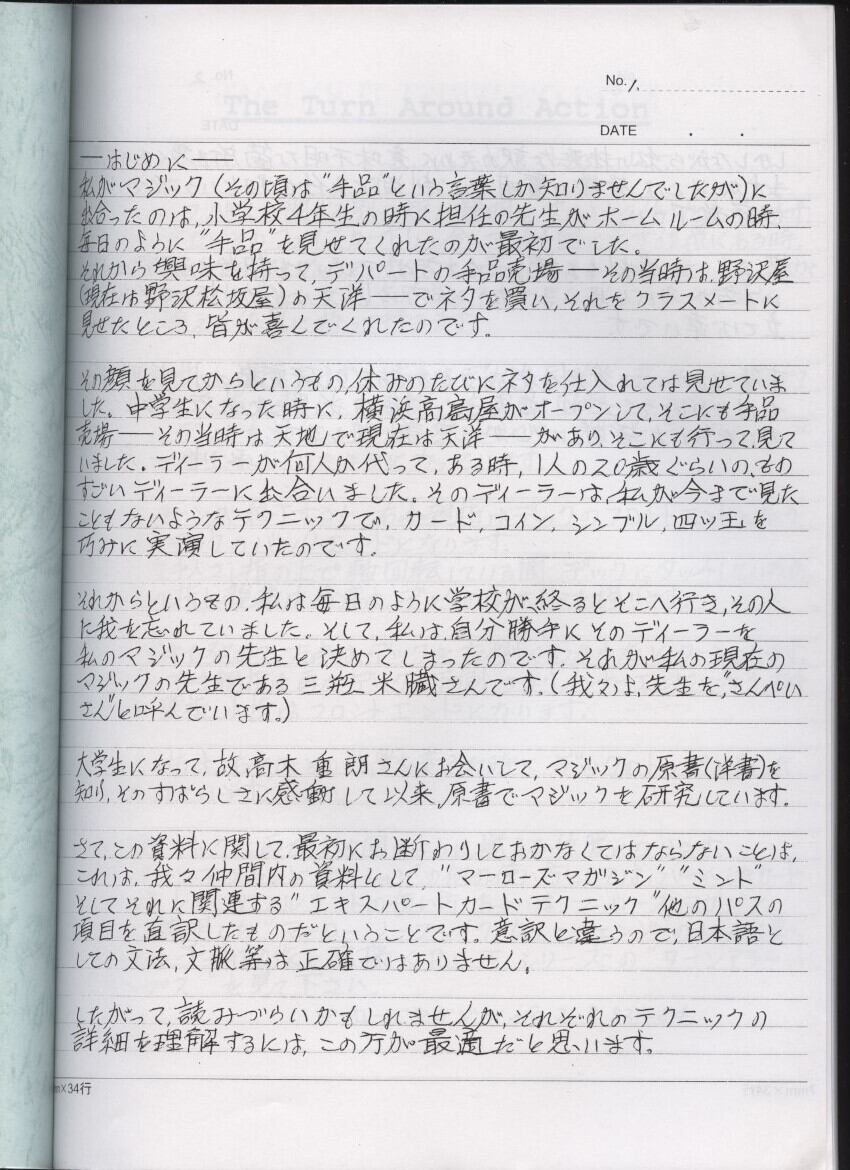 No. 1.
DATE . .
―はじめに―
私がマジック(その頃は"手品"という言葉しか知りませんでしたが)に
出合ったのは、小学校4年生の時に担任の先生がホームルームの時、
毎日のように"手品"を見せてくれたのが最初でした。
それから興味を持って、デパートの手品売場―その当時は、野沢屋
(現在は野沢松坂屋)の天洋―でネタを買い、それをクラスメートに
見せたところ、皆が喜んでくれたのです。
その顔を見てからというもの、休みのたびにネタを仕入れては見せていま
した。中学生になった時に、横浜高島屋がオープンして、そこにも手品
売場―その当時は天地で現在は天洋―があり、そこにも行って、見て
いました。ディーラーが何人か代って、ある時、1人の20歳ぐらいの、もの
すごいディーラーに出合いました。そのディーラーは、私が今まで見た
こともないようなテクニックで、カード、コイン、シンブル、四ツ玉を
巧みに実演していたのです。
それからというもの、私は毎日のように学校が終るとそこへ行き、その人
に我を忘れていました。そして、私は、自分勝手にそのディーラーを
私のマジックの先生と決めてしまったのです。それが私の現在の
マジックの先生である三瓶米臓さんです。(我々は、先生を"さんぺい
さん"と呼んでいます。)
大学生になって、故高木重朗さんにお会いして、マジックの原書(洋書)を
知り、そのすばらしさに感動して以来、原書でマジックを研究しています。
さて、この資料に関して、最初にお断わりしておかなくてはならないことは、
これは、我々仲間内の資料として、"マーローズマガジン""ミント"
そしてそれに関連する"エキスパートカードテクニック"他のパスの
項目を直訳したものだということです。意訳と違うので、日本語と
しての文法、文脈等は正確ではありません。
したがって、読みづらいかもしれませんが、それぞれのテクニックの
詳細を理解するには、この方が最適だと思います。
m×34行